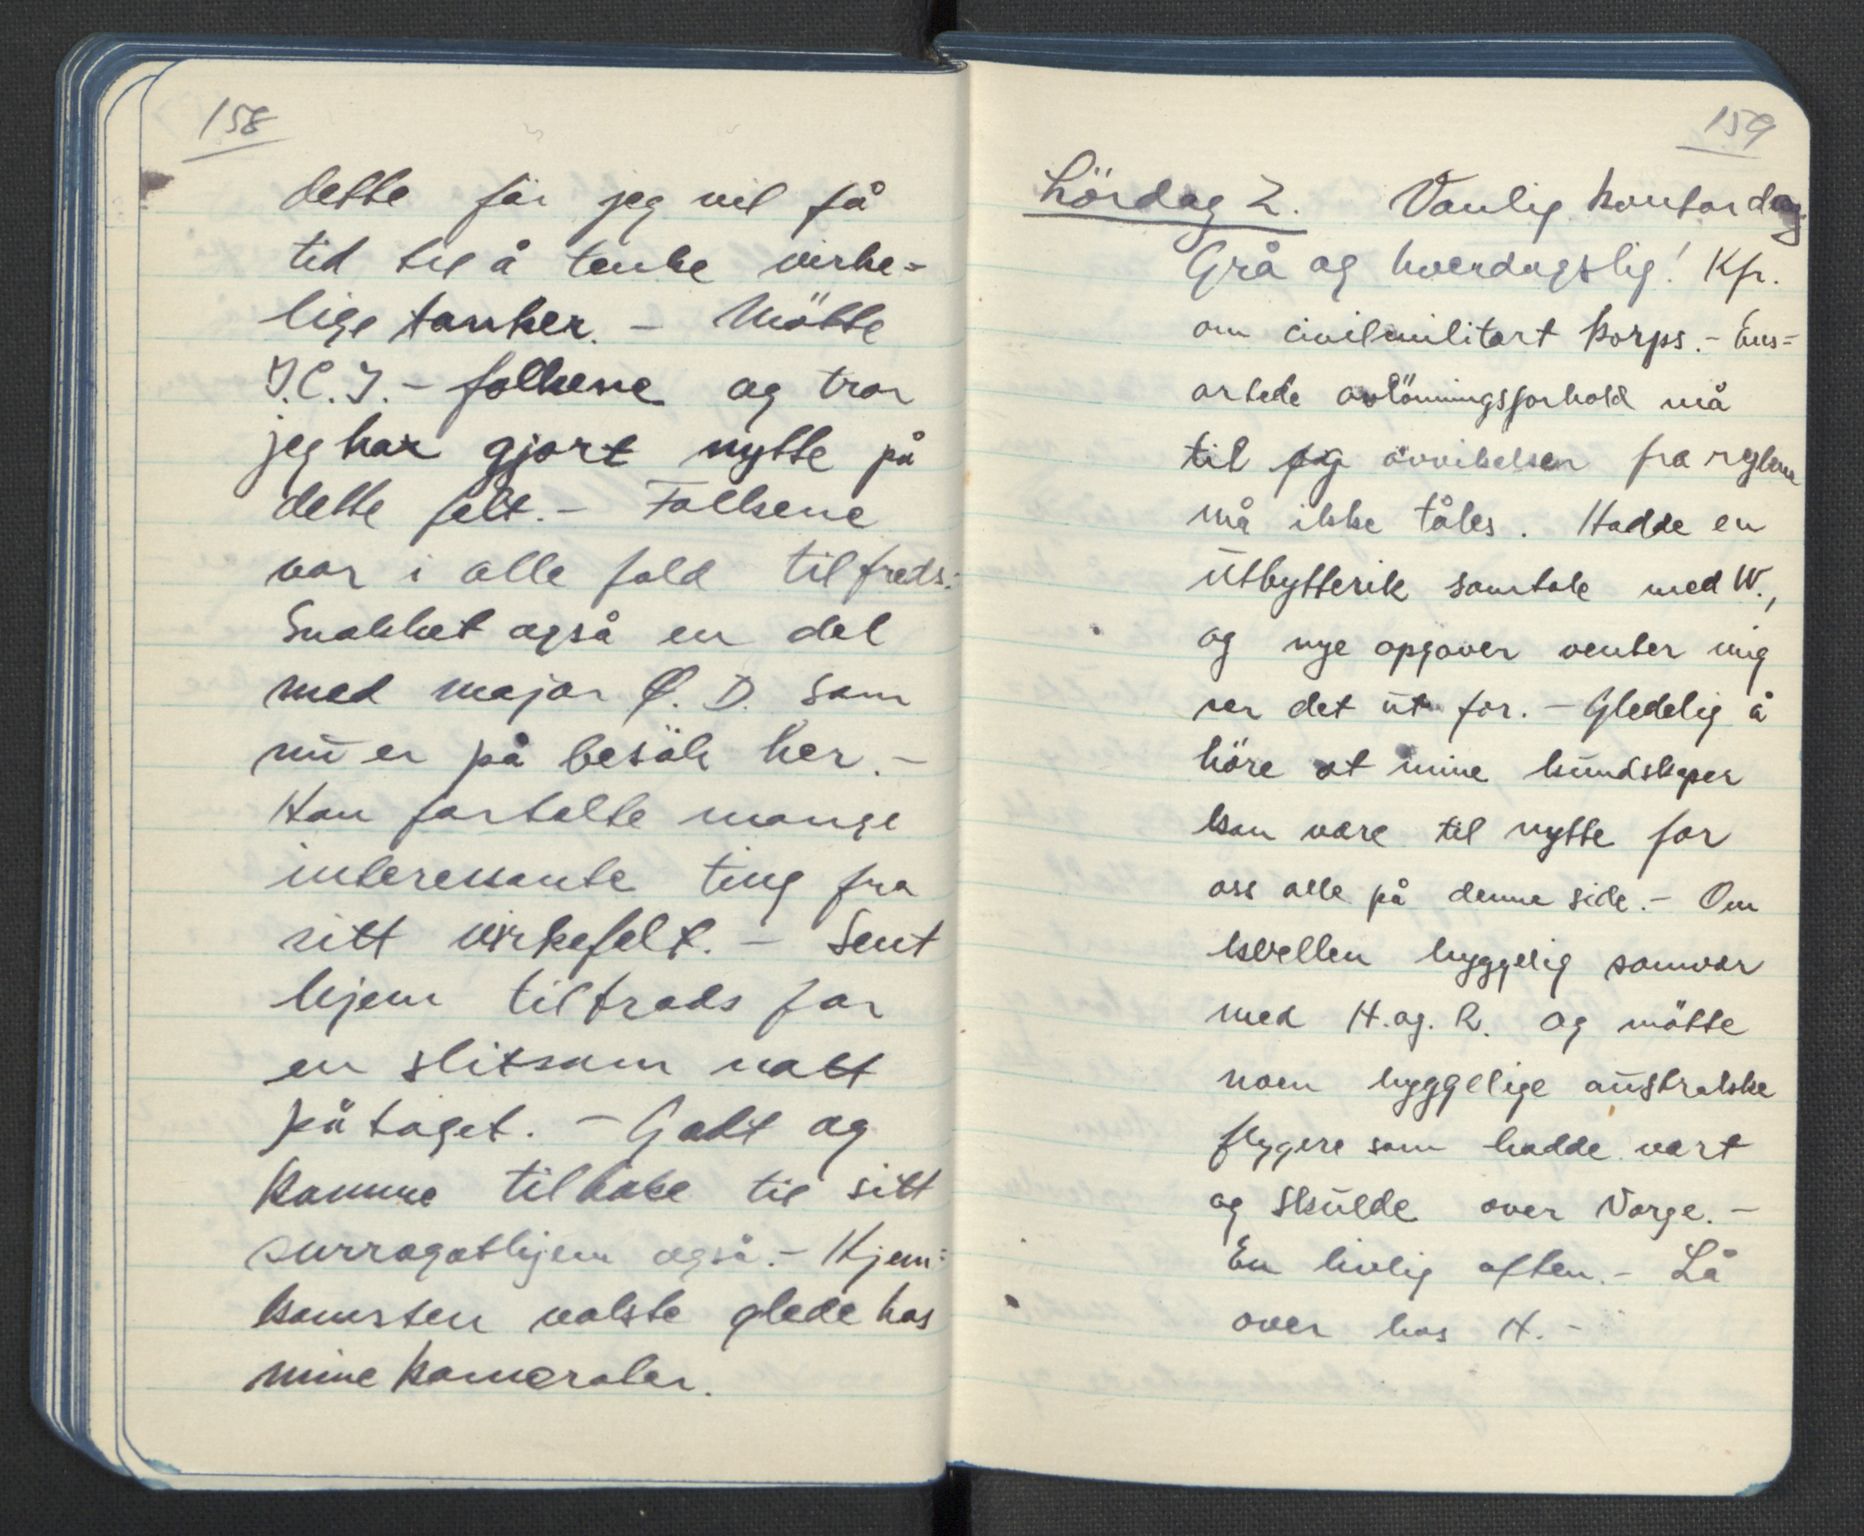 158
dette før jeg vil få
tid til å tenke virke=
lige tanker. – Mötte
I.C.I. – folkene og tror
jeg har gjort nytte på
dette felt. – Folkene
var i alle fald tilfreds.
Snakket også en del
med major Ø. D. som
nu er på besök her. –
Han fortalte mange
interessante ting fra
sitt virkefelt. – Sent
hjem tiltrods for
en slitsom natt
på toget. – Godt og
komme tilbake til sitt
surrogathjem også. – Hjem=
komsten vakste glede hos
mine kamerater.
159
Lördag 2. Vanlig kontordag.
Grå og hverdagslig! Kfr.
om civilmilitært korps. – Ens=
artede avlönningsforhold må
til og avvikelsen fra reglene
må ikke tåles. Hadde en
utbytterik samtale med W.,
og nye opgaver venter mig
ser det ut for. – Gledelig å
höre at mine kundskaper
kan være til nytte for
oss alle på denne side. – Om
kvellen hyggelig samvær
med H. og. R. og mötte
noen hyggelige australske
flygere som hadde vært
og skulde over Norge. –
En livlig aften. – Lå
over hos H. –